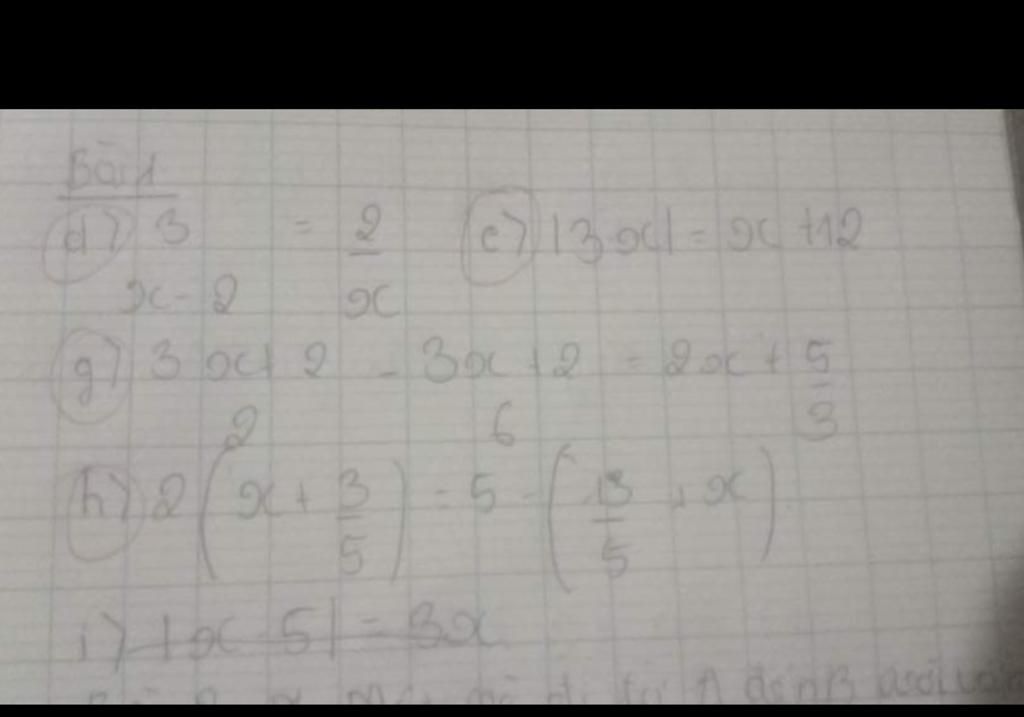 Bài 1
d) 3/(x-2) = 2/x e) |3x| = x+12
g) (3x+2)/2 - (3x+2)/6 = 2x + 5/3
h) 2(x + 3/5) = 5 - (13/5 + x)
i) |x-5| = 3x
A đến B